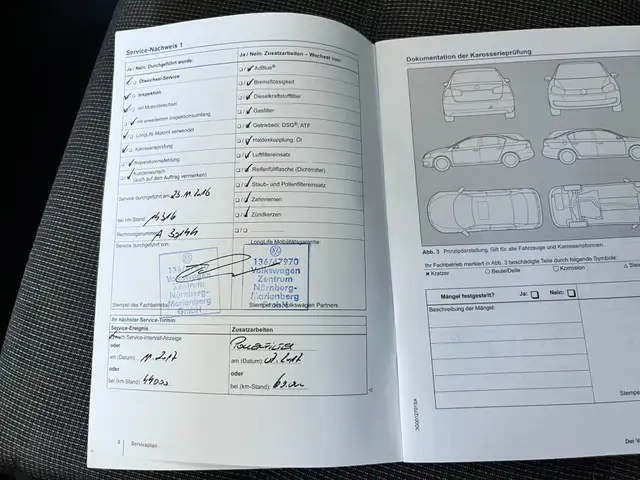 Service-Nachweis 1
Ja / Nein. Durchgeführt wurde:
Ölwechsel-Service
Inspektion
mit Motorölwechsel
mit erweitertem Inspektionsumfang
LongLife Motoröl verwendet
Karosserieprüfung
Reparaturempfehlung
Kundenwunsch
(auch auf dem Auftrag vermerken)
Service durchgeführt am: 23.11.2016
bei km-Stand: 14316
Rechnungsnummer: A 30144
Service durchgeführt von:
Volkswagen
Zentrum
Nürnberg-
Marienberg
GmbH
Stempel des Fachbetriebs
Ja / Nein. Zusatzarbeiten – Wechsel von:
AdBlue®
Bremsflüssigkeit
Dieselkraftstofffilter
Gasfilter
Getriebeöl: DSG®, ATF
Haldexkupplung: Öl
Luftfiltereinsatz
Reifenfüllflasche (Dichtmittel)
Staub- und Pollenfiltereinsatz
Zahnriemen
Zündkerzen
LongLife Mobilitätsgarantie:
136/47970
Volkswagen
Zentrum
Nürnberg-
Marienberg
Stempel des Volkswagen Partners
Ihr nächster Service-Termin
Service-Ereignis
nach Service-Intervall-Anzeige
oder
am (Datum): 11.2017
oder
bei (km-Stand):
Zusatzarbeiten
oder
am (Datum):
oder
bei (km-Stand):
8 Serviceplan
Dokumentation der Karosserieprüfung
Abb. 3 Prinzipdarstellung. Gilt für alle Fahrzeuge und Karosserieformen.
Ihr Fachbetrieb markiert in Abb. 3 beschädigte Teile durch folgende Symbole:
× Kratzer ○ Beule/Delle □ Korrosion △
Mängel festgestellt? Ja: Nein:
Beschreibung der Mängel: